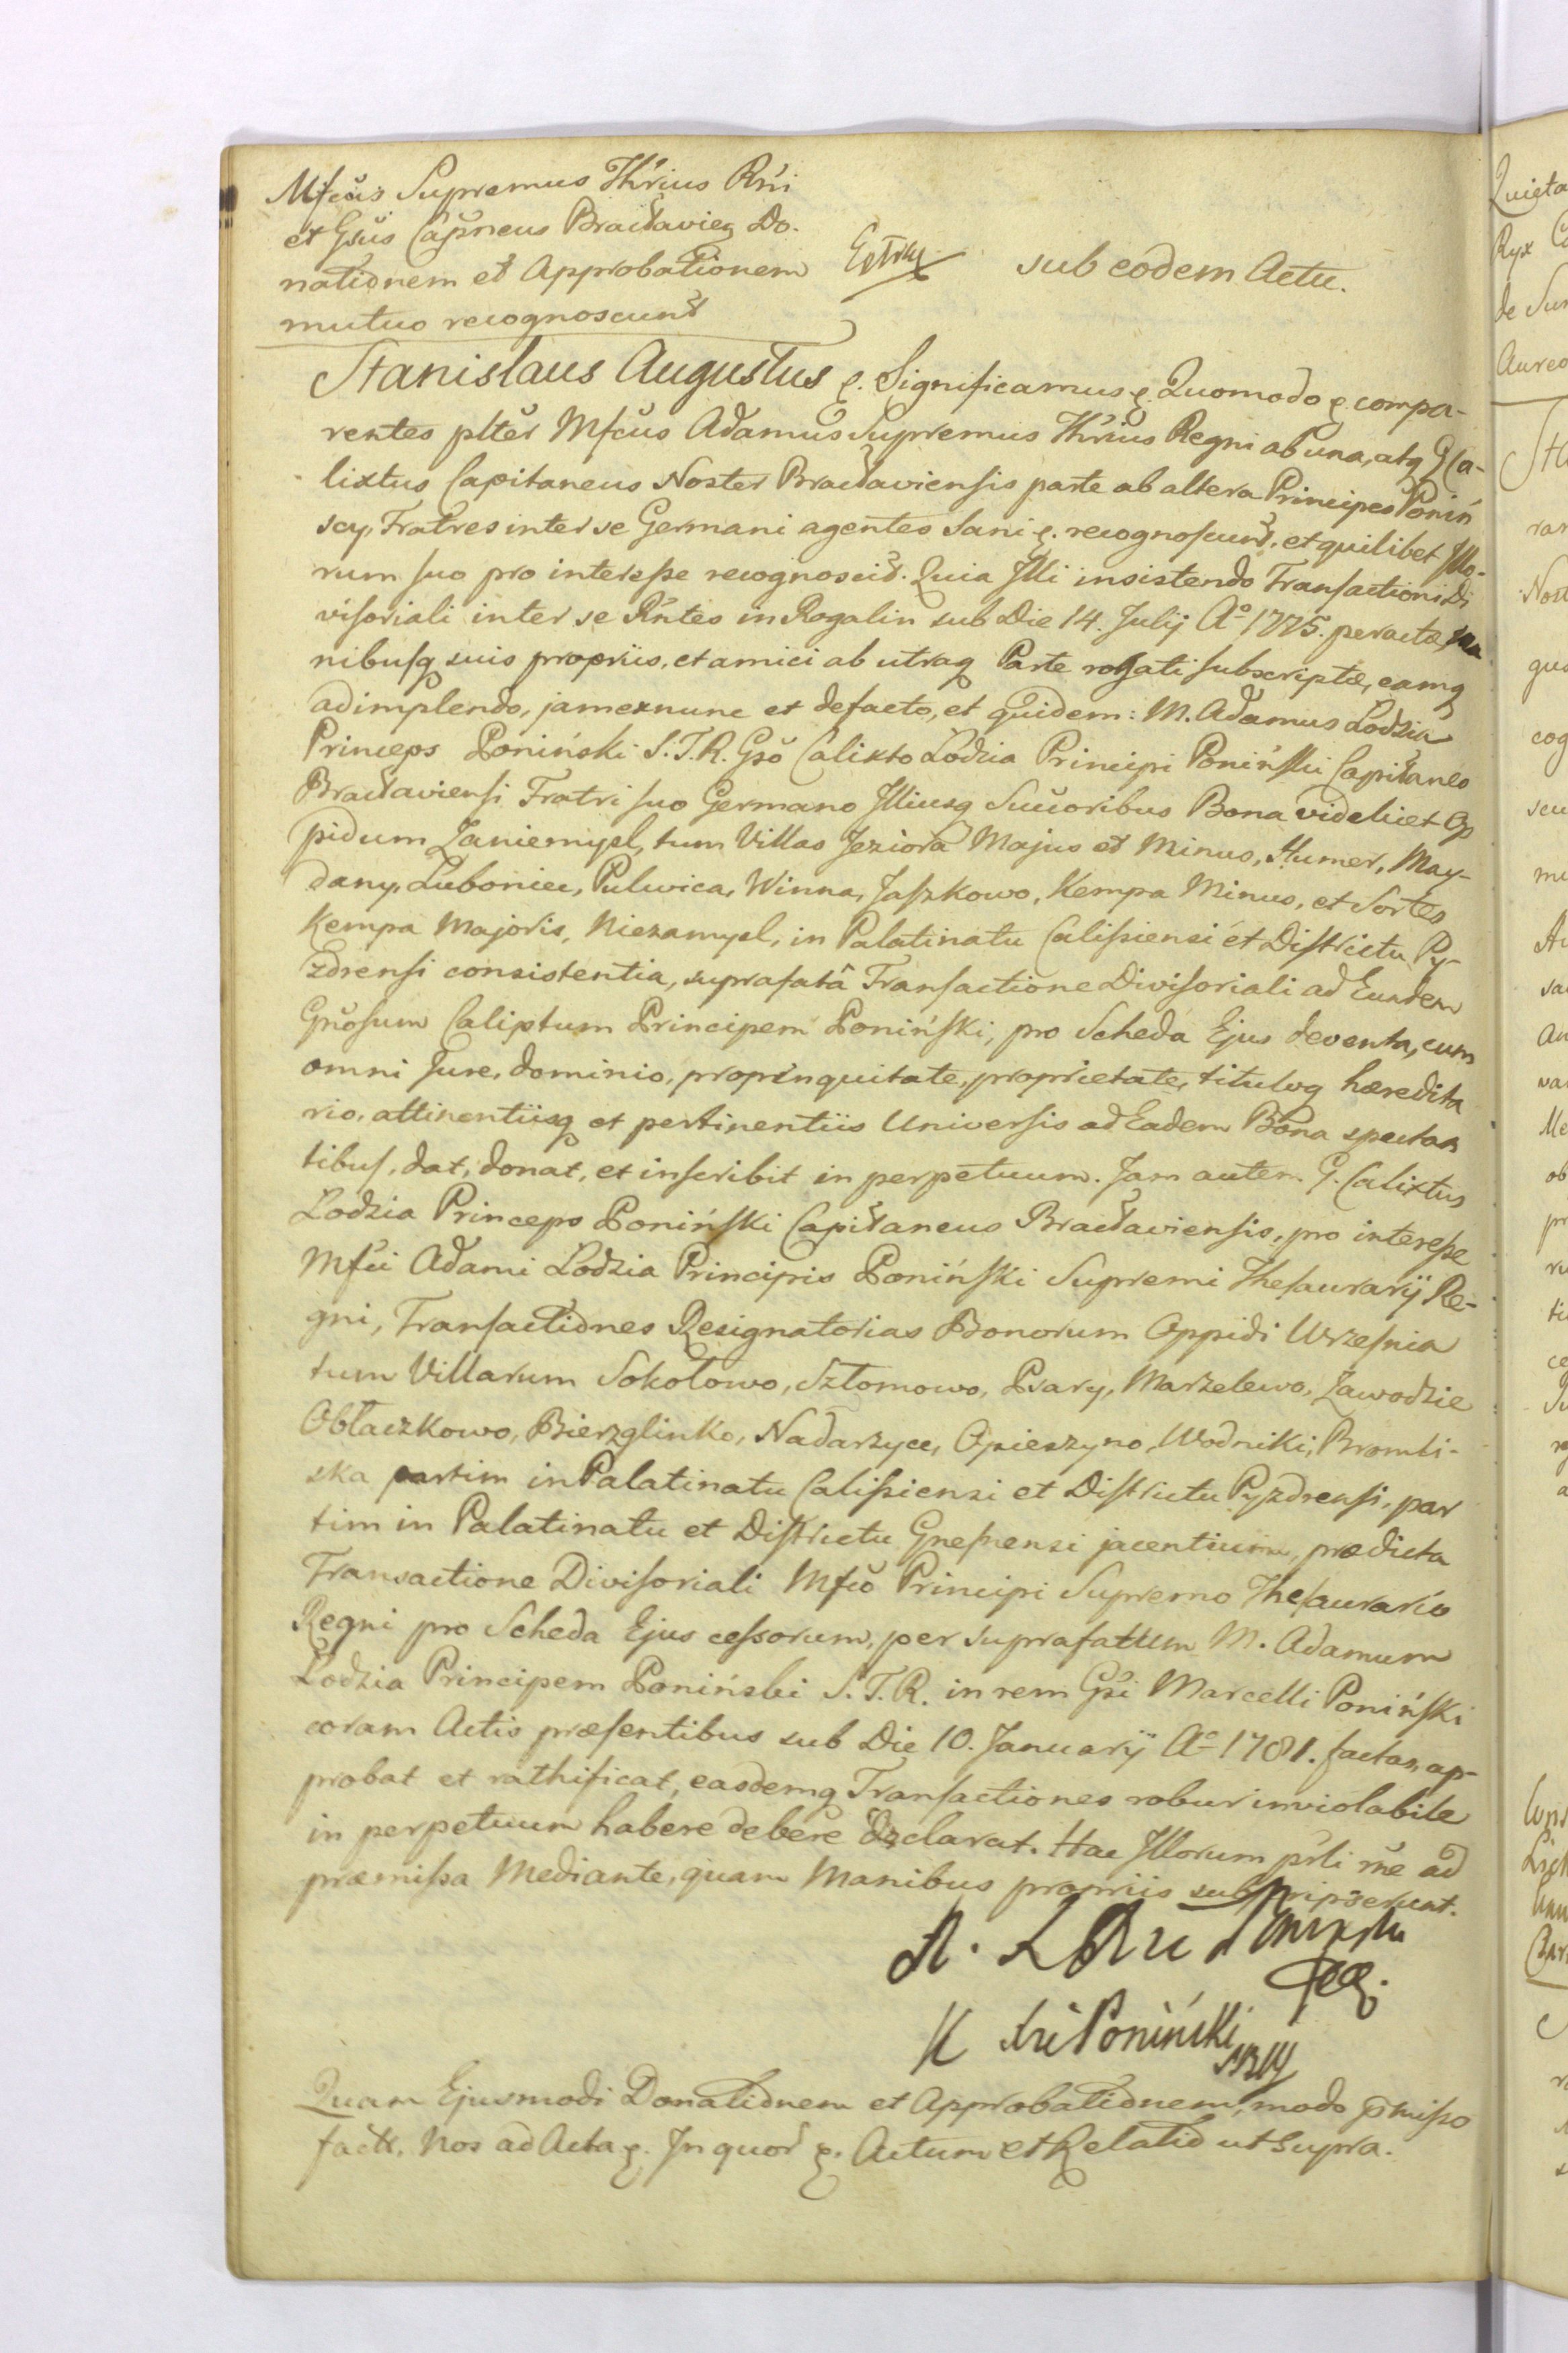 Mfcus Supremus Th̃rius Rñi
et Gsus Capñeus Bracłavien Do-
nationem et Approbationem
mutuo recognoscunt
Extrx
sub eodem Actu.
Stanislaus Augustus &. Significamus &. Quomodo & compa-
rentes plter Mfcus Adamus Supremus Th̃rius Regni ab una, atq G Ca-
lixtus Capitaneus Noster Bracłaviensis parte ab altera Principes Poniń
scy, Fratres inter se Germani agentes Sani &. recognoscunt, et quilibet Illo-
rum suo pro interesse recognoscit. Quia Illi insistendo Transactioni Di
visoriali inter se Rñtes in Rogalin sub Die 14. Julij A° 1775. peractæ, ma
nibusq suis propriis, et amici ab utraq Parte rogati subscriptæ, eamq
adimplendo, jam exnunc et defacto, et quidem: M. Adamus Lodzia
Princeps Poniński S. T. R. Gso Calixto Lodzia Principi Poniński Capitaneo
Bracłaviensi Fratri suo Germano Illiusq Succoribus Bona videlicet Op
pidum Zaniemysl, tum Villas Jeziora Majus et Minus, Humer, May-
dany, Luboniec, Pulwica, Winna, Jaszkowo, Kempa Minus, et Sortes
Kempa Majoris, Niezamysl, in Palatinatu Calissiensi et Districtu Py-
zdrensi consistentia, suprafatâ Transactione Divisoriali ad Eundem
Gnosum Calixtum Principem Poniński, pro Scheda Ejus deventa, cum
omni Jure, dominio, propinquitate, proprietate, tituloq hæredita
rio, attinentiisq et pertinentiis Universis ad Eadem Bona spectan
tibus, dat, donat, et inscribit in perpetuum. Jam autem G. Calixtus
Lodzia Princeps Poniński Capitaneus Bracłaviensis, pro interesse
Mfci Adami Lodzia Principis Poniński Supremi Thesaurarij Re-
gni, Transactiones Resignatorias Bonorum Oppidi Wrzesnia
tum Villarum Sokołowo, Sztomowo, Psary, Marzelewo, Zawodzie
Obłaczkowo, Bierzglinko, Nadarzyce, Opieszyno, Wodniki, Brombi-
ska partim in Palatinatu Calissiensi et Districtu Pyzdrensi, par
tim in Palatinatu et Districtu Gnesnensi jacentium, prædicta
Transactione Divisoriali Mfco Principi Supremo Thesaurario
Regni pro Scheda Ejus cessorum, per suprafatum M. Adamum
Lodzia Principem Poniński S. T. R. in rem Gsi Marcelli Poniński
coram Actis præsentibus sub Die 10. Januarij A° 1781. factas, ap-
probat et rathificat, easdemq Transactiones robur inviolabile
in perpetuum habere debere declarat. Hac Illorum prli rñe ad
præmissa Mediante, quam Manibus propriis subscripserunt.
K Xże Poniński
Quam Ejusmodi Donationem et Approbationem, modo præmisso
fact. Nos ad Acta &. In quor &. Actum et Relatio ut supra.